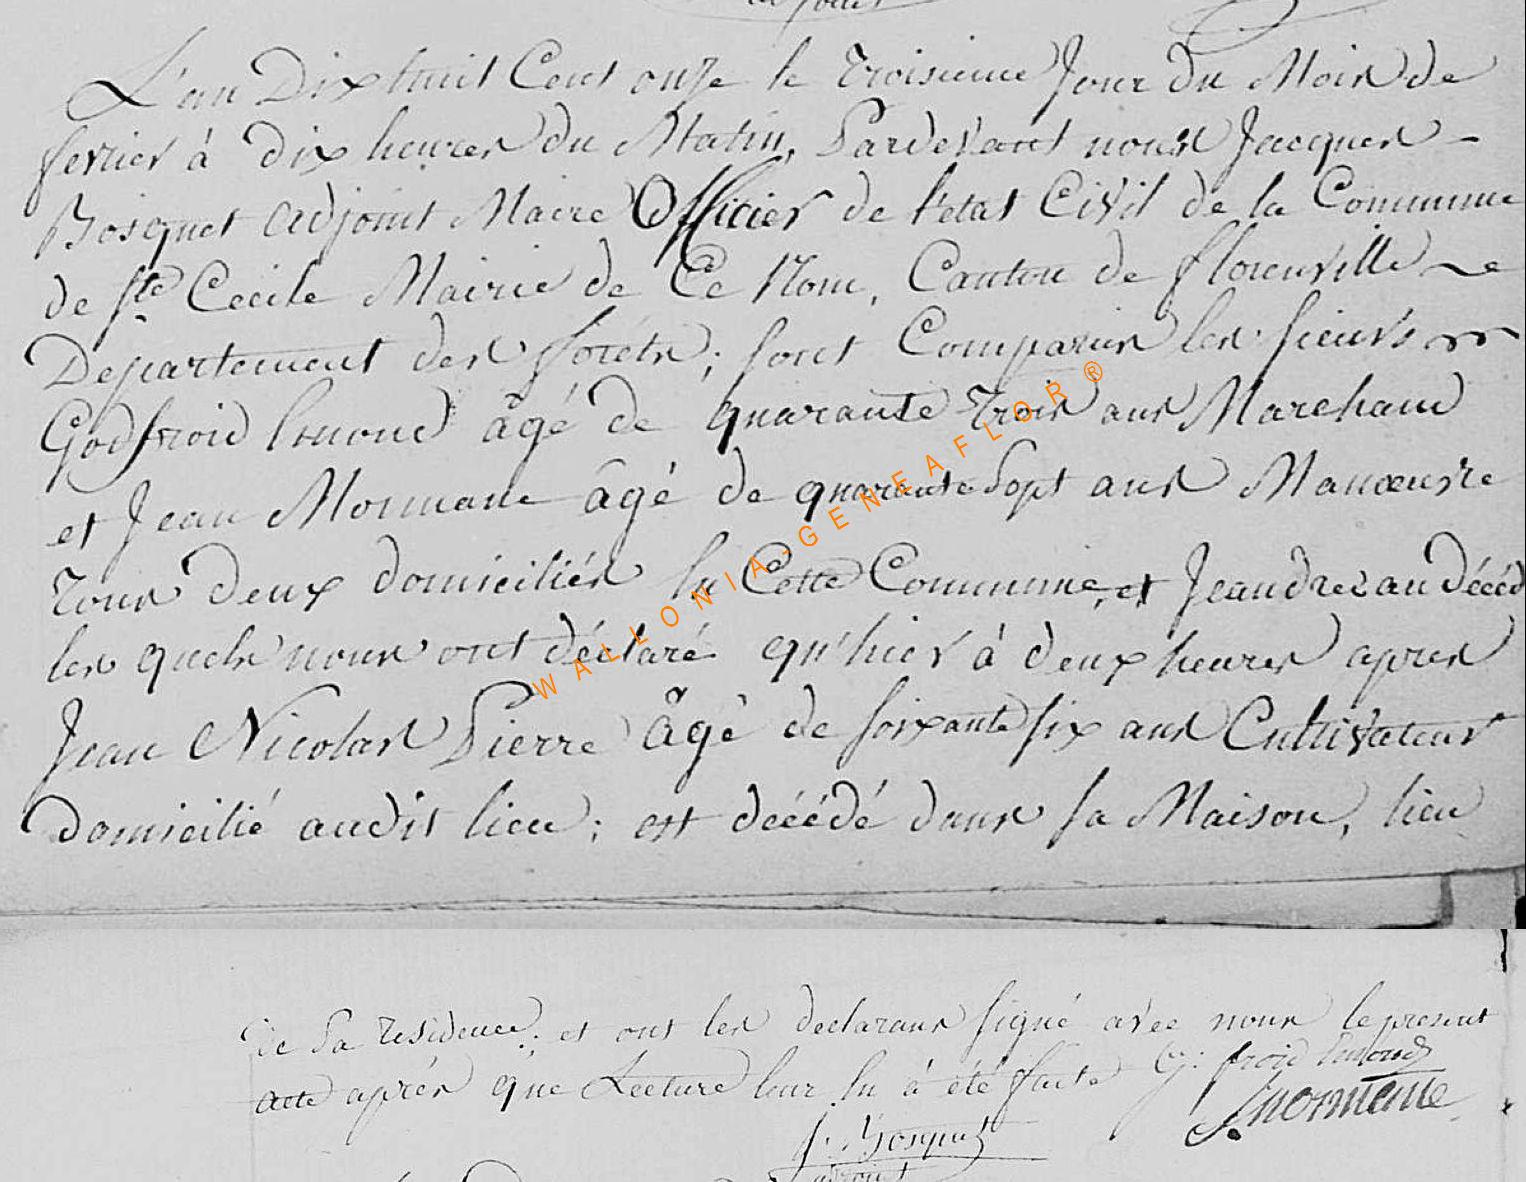 L'an Dix huit Cent onze le troisieme Jour du Mois de
fevrier à dix heures du Matin, Pardevant nous Jacques -
Bosquet adjoint Maire Officier de l'etat Civil de la Commune
de Ste Cecile Mairie de Ce Nom, Canton de florenville
Departement des foréts; sont Comparus les sieurs
Godfroid Emond âgé de quarante trois ans Marchand
et Jean Mormane âgé de quarante Sept ans Manœuvre
tous deux domiciliés en Cette Commune, et
les quels nous ont déclaré qu'hier à deux heures apres
Jean Nicolas Pierre âgé de soixante six ans Cultivateur
domicilié audit lieu; est déćédé dans sa Maison, lieu
de Sa residence; et ont les declarans signé avec nous le present
acte aprés que Lecture leur en à été faite G: froid Emond
J. Mormane
J. Bosquet
adjoint
WALLONIA-GENEAFLOR®